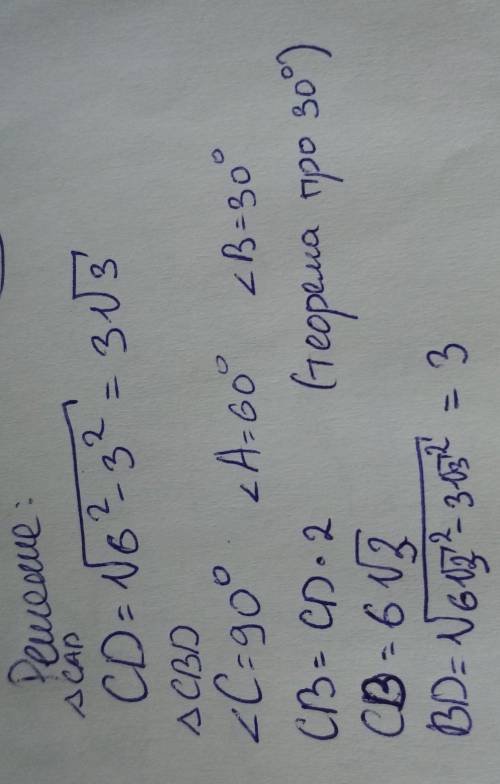 Решение:
△CAD
CD = √6² - 3² = 3√3
△CBD
∠C=90° ∠A=60° ∠B=30°
CB = CD · 2 (теорема про 30°)
CB = 6√3
BD = √6√3² - 3√3² = 3